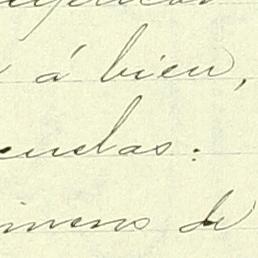 á bien,
cuelas:
imens de